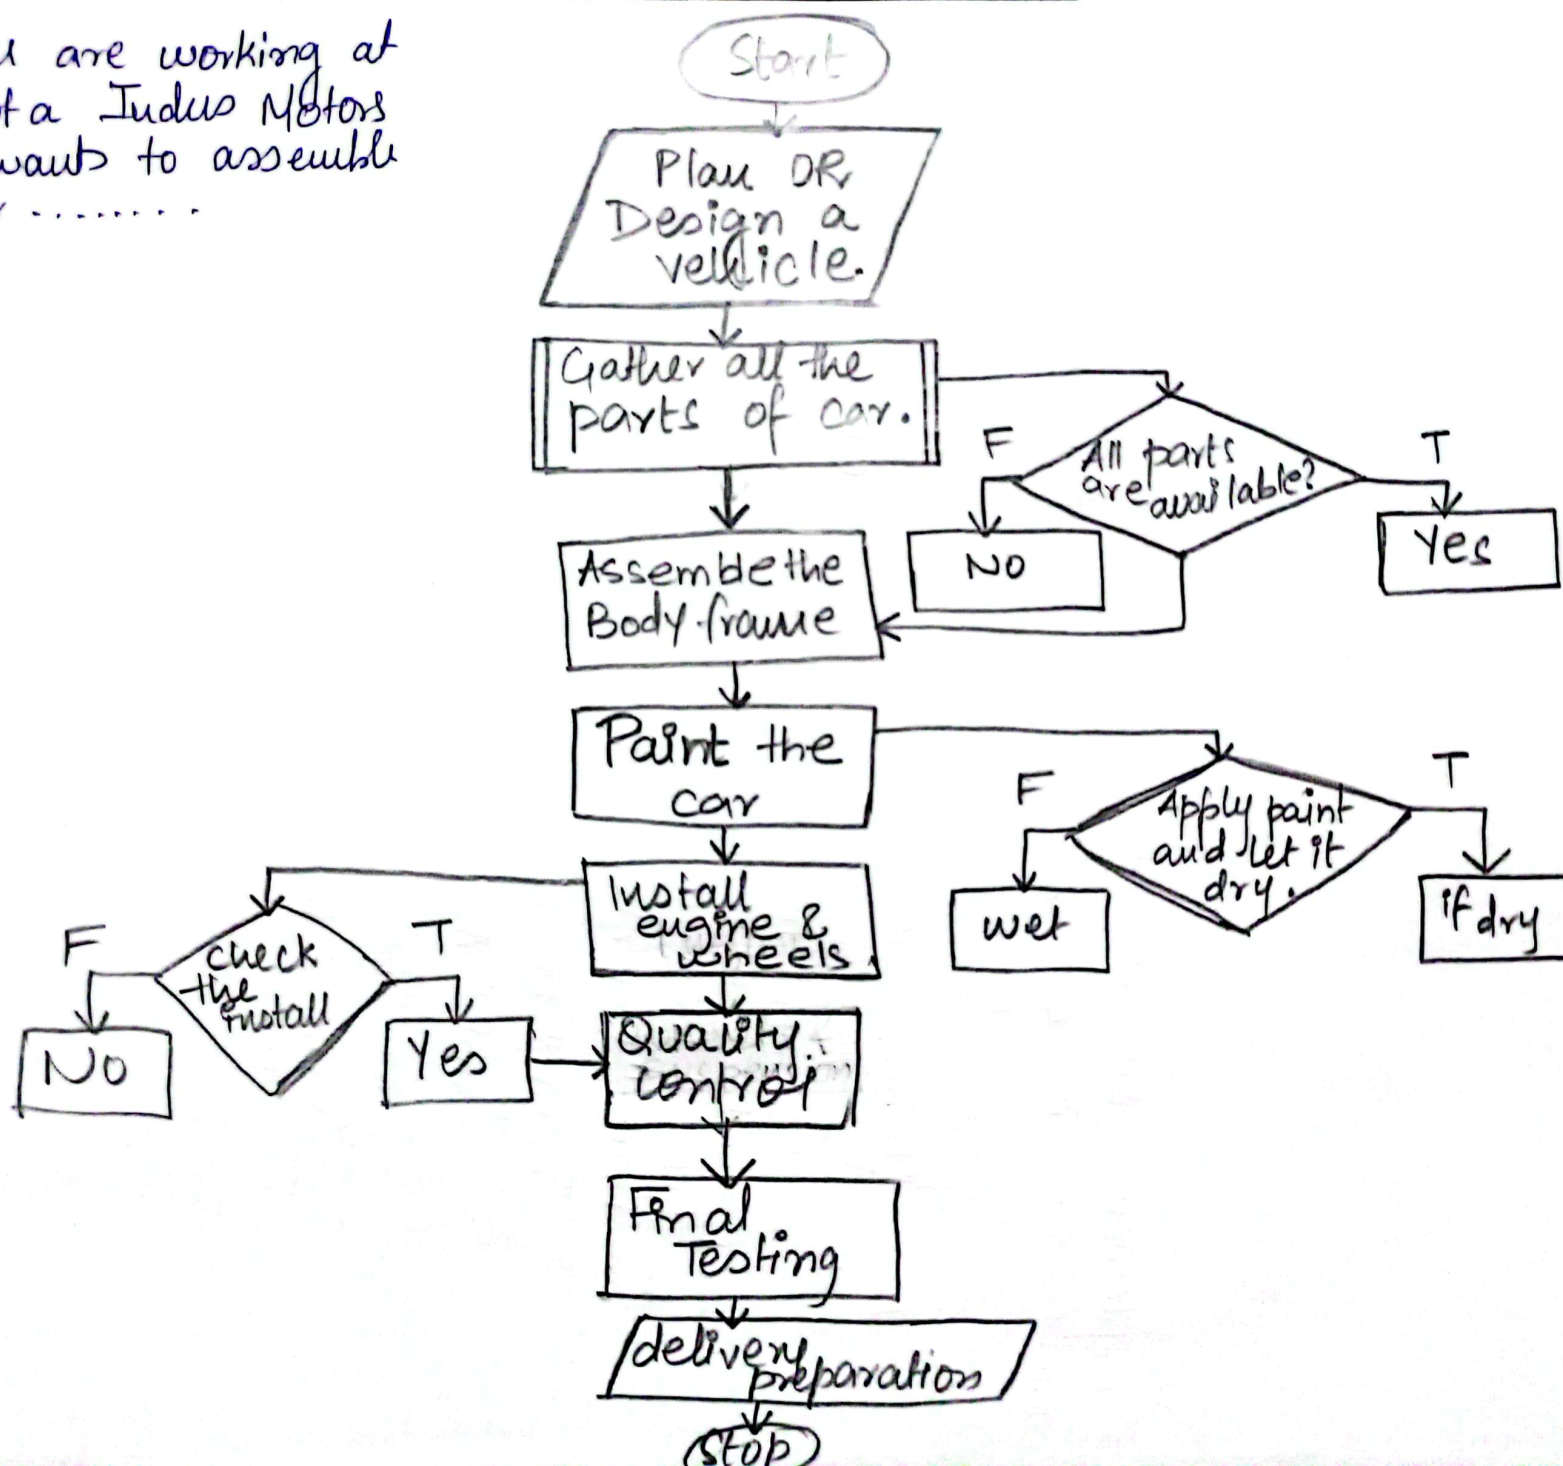 are working at
ta Indus Motors
wants to assemble
........
Start
Plan OR
Design a
vehicle.
Gather all the
parts of car.
All parts
are available?
F
T
No
Yes
Assemble the
Body frame
Paint the
car
Apply paint
and let it
dry.
F
T
wet
if dry
Install
engine &
wheels
check
the
install
F
T
No
Yes
Quality
control
Final
Testing
delivery
preparation
Stop